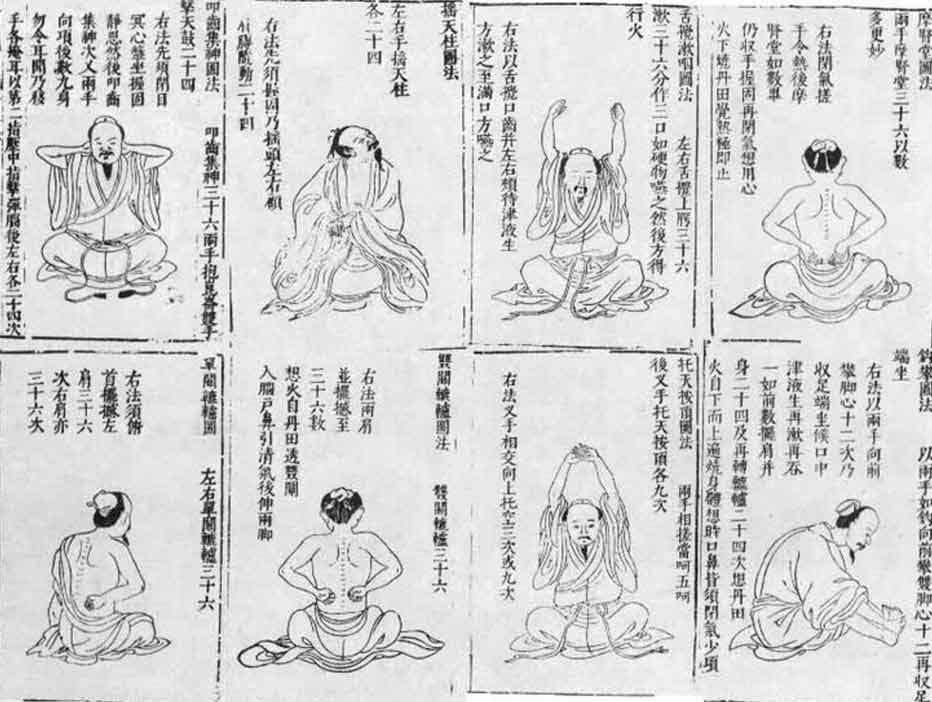 叩齒集神圖法　叩齒集神三十六兩手抱崑崙雙手
擊天鼓二十四
右法先須閉目
冥心盤坐握固
靜思然後叩齒
集神次叉兩手
向項後數九息
勿令耳聞乃移
手各掩耳以第二指壓中指擊彈腦後左右各二十四次
搖天柱圖法
左右手搖天柱
各二十四
右法先須握固乃搖頭左右顧
肩膊隨動二十四
舌攪漱咽圖法　左右舌攪上腭三十六
漱三十六分作三口如硬物嚥之然後方得
行火
右法以舌攪口齒并左右頰待津液生
方漱之至滿口方嚥之
摩腎堂圖法
兩手摩腎堂三十六以數
多更妙
右法閉氣搓
手令熱後摩
腎堂如數畢
仍收手握固再閉氣想用心
火下燒丹田覺熱極即止
單關轆轤圖　左右單關轆轤三十六
右法須俯
首擺撼左
肩三十六
次右肩亦
三十六次
雙關轆轤圖法　雙關轆轤三十六
右法兩肩
並擺撼至
三十六數
想火自丹田透雙關
入腦戶鼻引清氣後伸兩脚
托天按頂圖法　兩手相搓當呵五呵
後叉手托天按頂各九次
右法叉手相交向上托空三次或九次
鉤攀圖法　以兩手如鉤向前攀雙脚心十二再收足
端坐
右法以兩手向前
攀脚心十二次乃
收足端坐候口中
津液生再漱再吞
一如前數擺肩并
身二十四及再轉轆轤二十四次想丹田
火自下而上遍燒身體想時口鼻皆須閉氣少頃